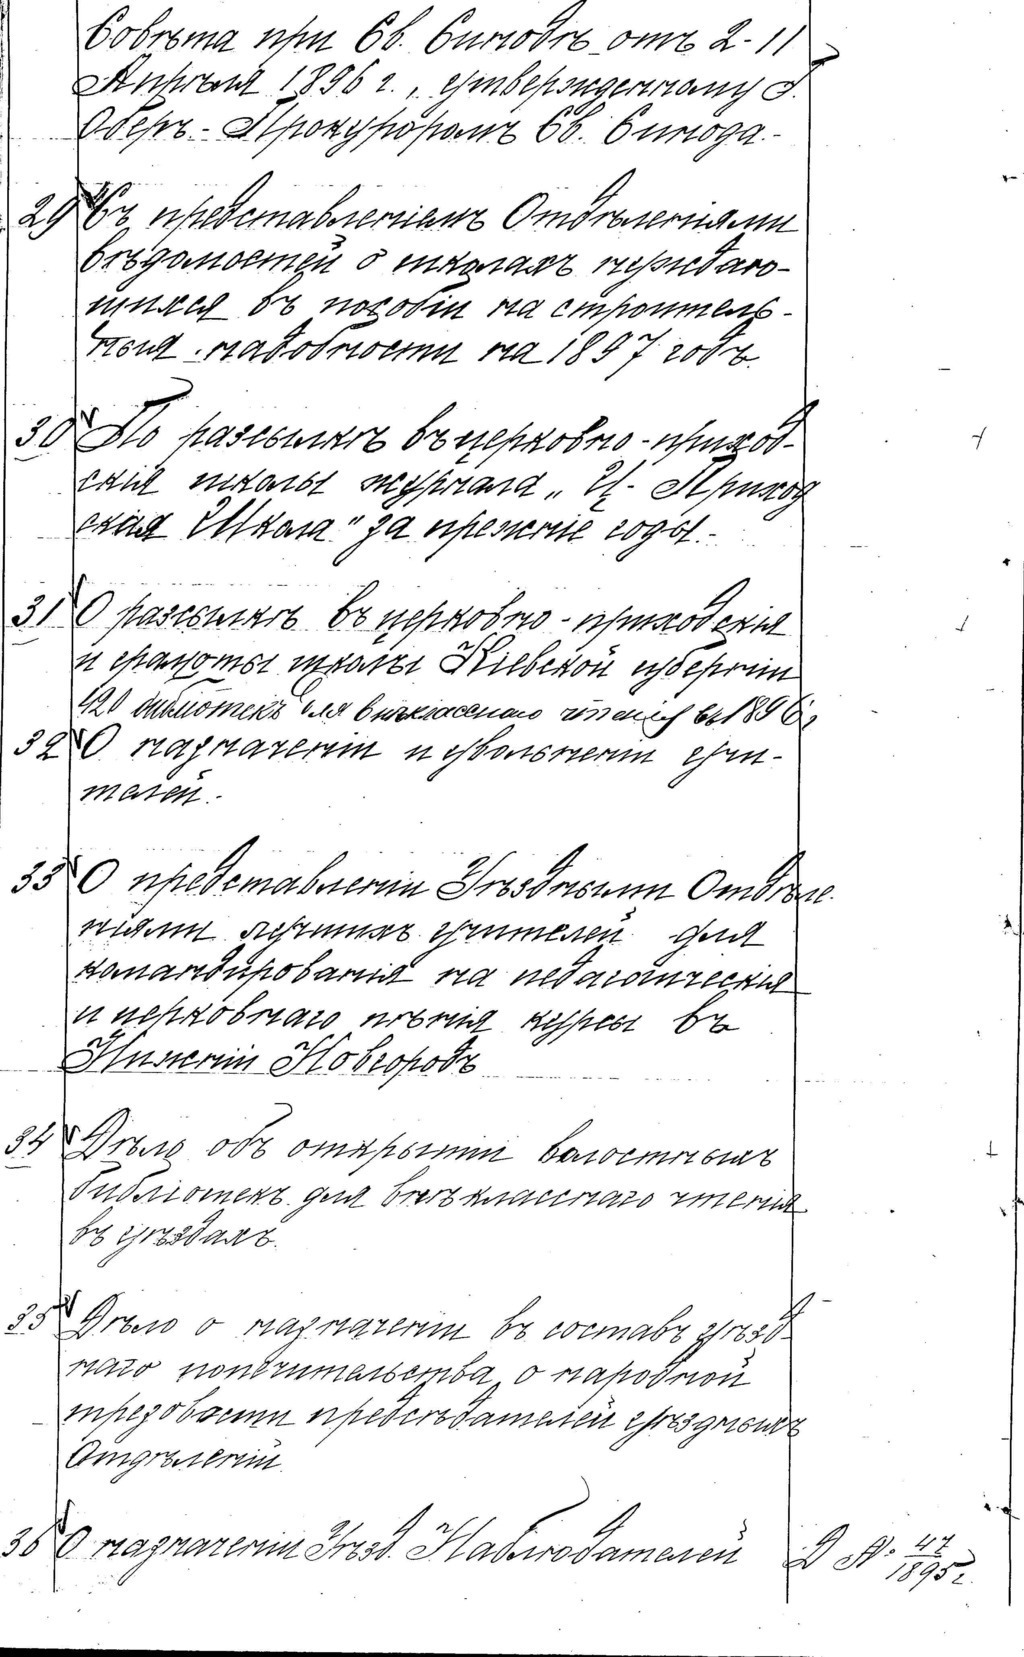 Совѣта при Св. Синодѣ отъ 2-11
Апрѣля 1896 г., утвержденному Г.
Оберъ-Прокуроромъ Св. Синода.-
29 Съ представленіемъ Отдѣленіями
вѣдомостей о школахъ нуждаю-
щихся въ пособіи на строитель-
ныя надобности на 1897 годъ.
30 По разсылкѣ въ церковно-приход-
скія школы журнала „Ц.-Приход
ская Школа" за прежніе годы.-
31 О разсылкѣ въ церковно-приходскія
и грамоты школы Кіевской губерніи
420 библіотекъ для внѣкласснаго чтенія въ 1896 г.
32 О назначеніи и увольненіи учи-
телей.-
33 О представленіи Уѣздными Отдѣле-
ніями лучшихъ учителей для
командированія на педагогическія
и церковнаго пѣнія курсы въ
Нижній Новгородъ
34 Дѣло объ открытіи волостныхъ
библіотекъ для внѣкласснаго чтенія
въ уѣздахъ.
35 Дѣло о назначеніи въ составъ уѣзд-
наго попечительства о народной
трезвости предсѣдателей уѣздныхъ
Отдѣленій.
36 О назначеніи Уѣзд. Наблюдателей Д №: 47/1895 г.